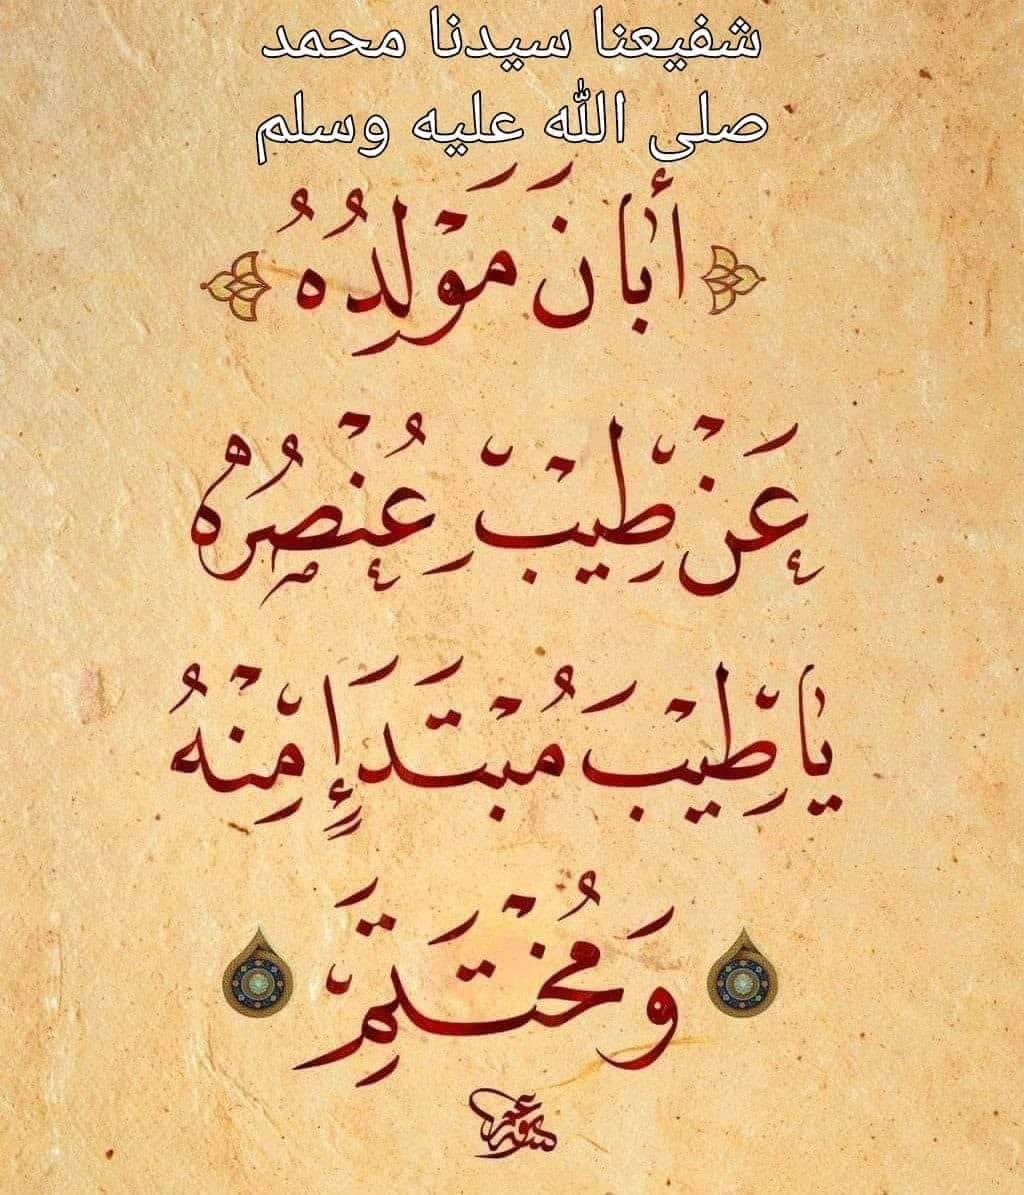 شفيعنا سيدنا محمد
صلى الله عليه وسلم
أَبَانَ مَوْلِدُهُ
عَنْ طِيْبِ عُنْصُرِهْ
يَا طِيْبَ مُبْتَدَإٍ مِنْهُ
وَمُخْتَتَمِ